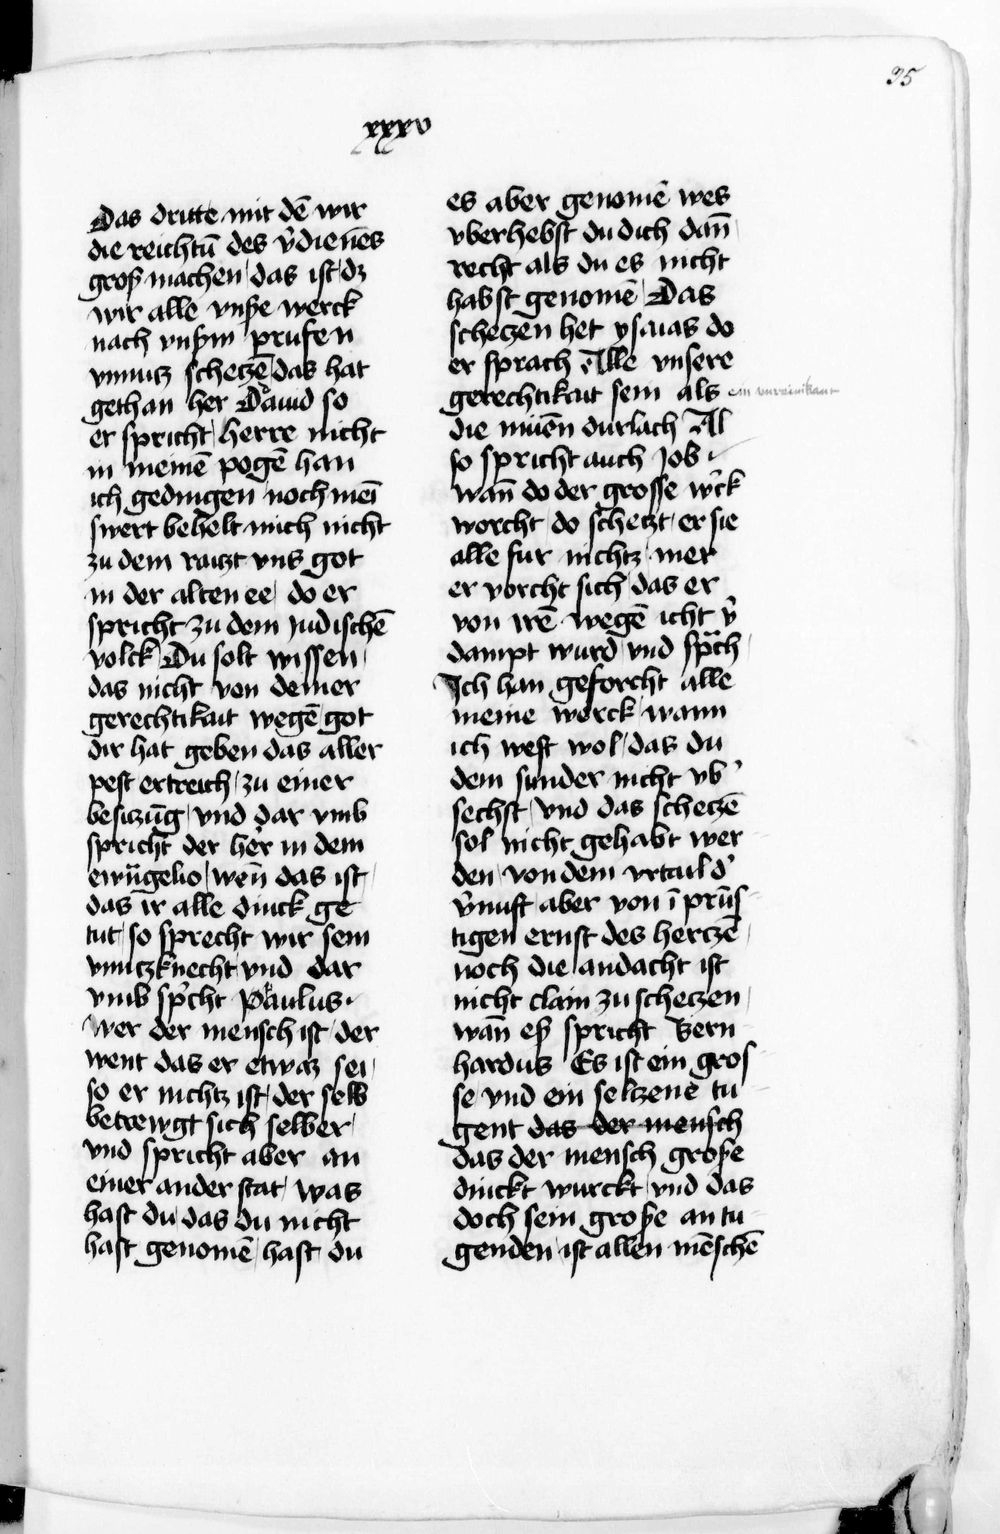 35
xxxv
Das dritte mit dē wir
die reichtū des v̓dienēs
groſʒ machen / das ist / dz
wir alle vnſʒe werck
nach vnſʒm prufen
vnnutz schetzē / das hat
gethan her Dauid so
er spricht / herre nicht
in meinē pogē han
ich gedingen / noch meī
swert behelt mich nicht
zu dem raitzt vns got
in der alten ee / do er
spricht zu dem Judischē
volck / Du solt wissen /
das nicht von deiner
gerechtikait wegē / got
dir hat geben das aller
pest ertreich / zu einer
besitzūg / vnd dar vmb
spricht der her in dem
ewāgelio / wen̄ das ist /
das ir alle dinck ge
tut / so sprecht wir sein
vnnutzknecht vnd dar
vmb sp̓cht Paulus ·
Wer der mensch ist / der
went das er etwaz sei /
so er nichtz ist / der selb
betrewgt sich selber /
vnd spricht aber an
einer ander stat / was
hast du / das du nicht
hast genomē / hast du
es aber genomē wes
vberhebst du dich dan̄ /
recht als du es nicht
habst genomē / Das
schetzen het ysaias do
er sprach Alle vnsere
gerechtikait sein als ein vnreinikaut
die
durlach Al
so spricht auch Job ·
wan̄ do der grosse w̓ck
worcht / do schetzt / er sie
alle fur nichtz / mer
er vorcht sich / das er
von irē wegē icht v̓
dampt wurd / vnd sprach /
Ich han geforcht alle
meine werck / wann
ich west wol / das du
dem sunder nicht vb̓
sechst / vnd das schetzē
sol nicht gehabt wer
den / von dem vrtail d̓
v̓nuft / aber von ī prūs
tigen ernst des hertzē /
noch die andacht ist
nicht clain zu schetzen /
wan̄ eſʒ spricht Bern
hardus Es ist ein gros
se / vnd ein seltzene tu
gent das der mensch
das der mensch groſʒe
dinckt wurckt / vnd das
doch sein groſʒe an tu
genden / ist allen mēschē